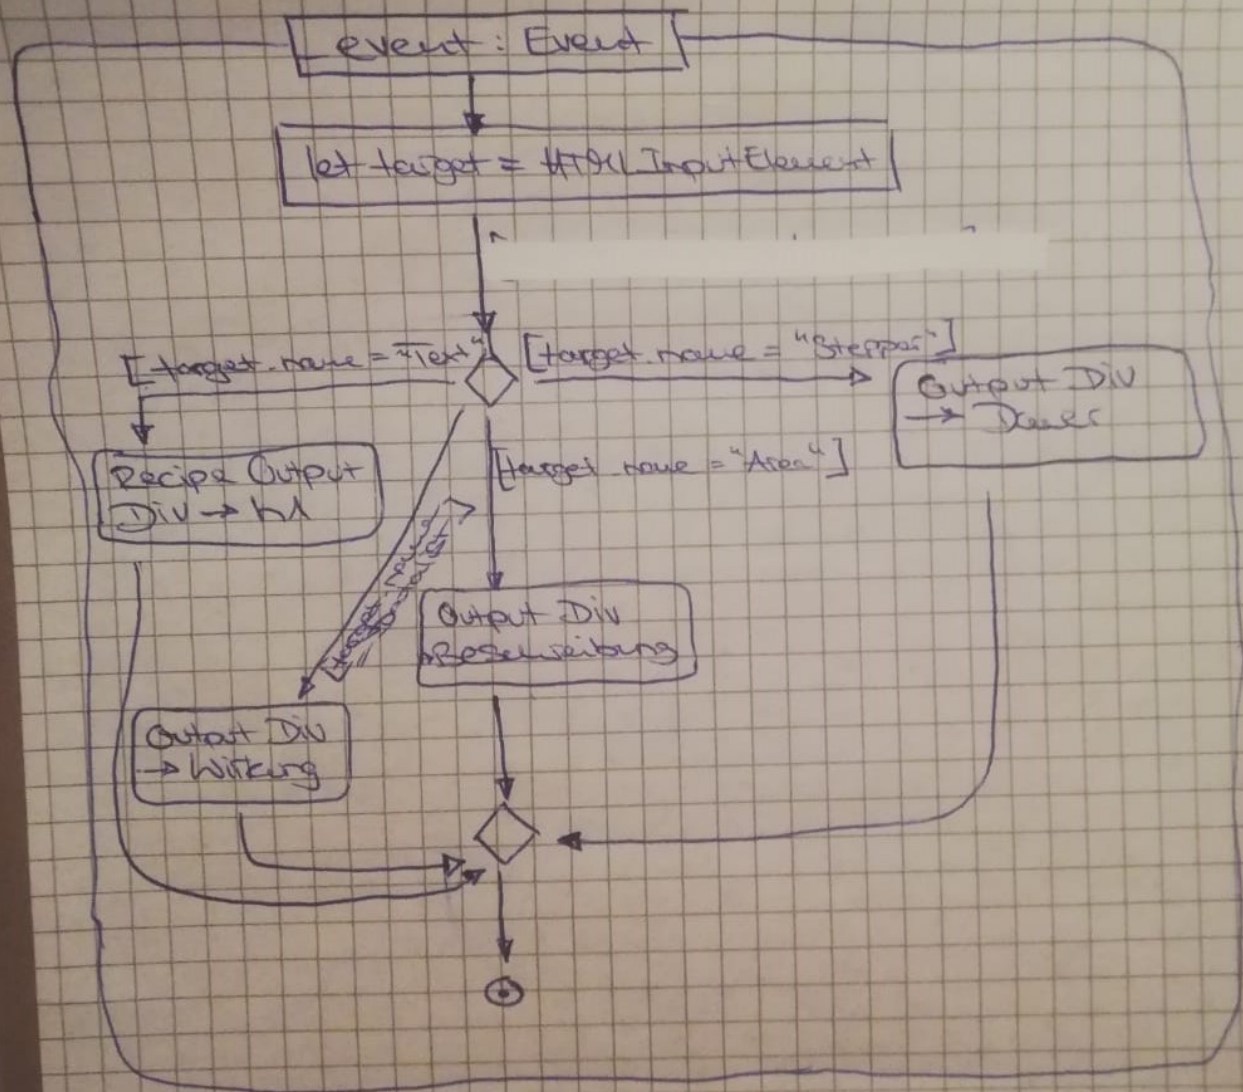 event : Event
let target = HTML InputElement
[target.name = "Text"
[target name = "Stepper"]
Output Div
→ Dauer
[target name = "Area"]
Recipe Output
Div → h1
[target.name
datalist
Output Div
Beschreibung
Output Div
→ Wirkung